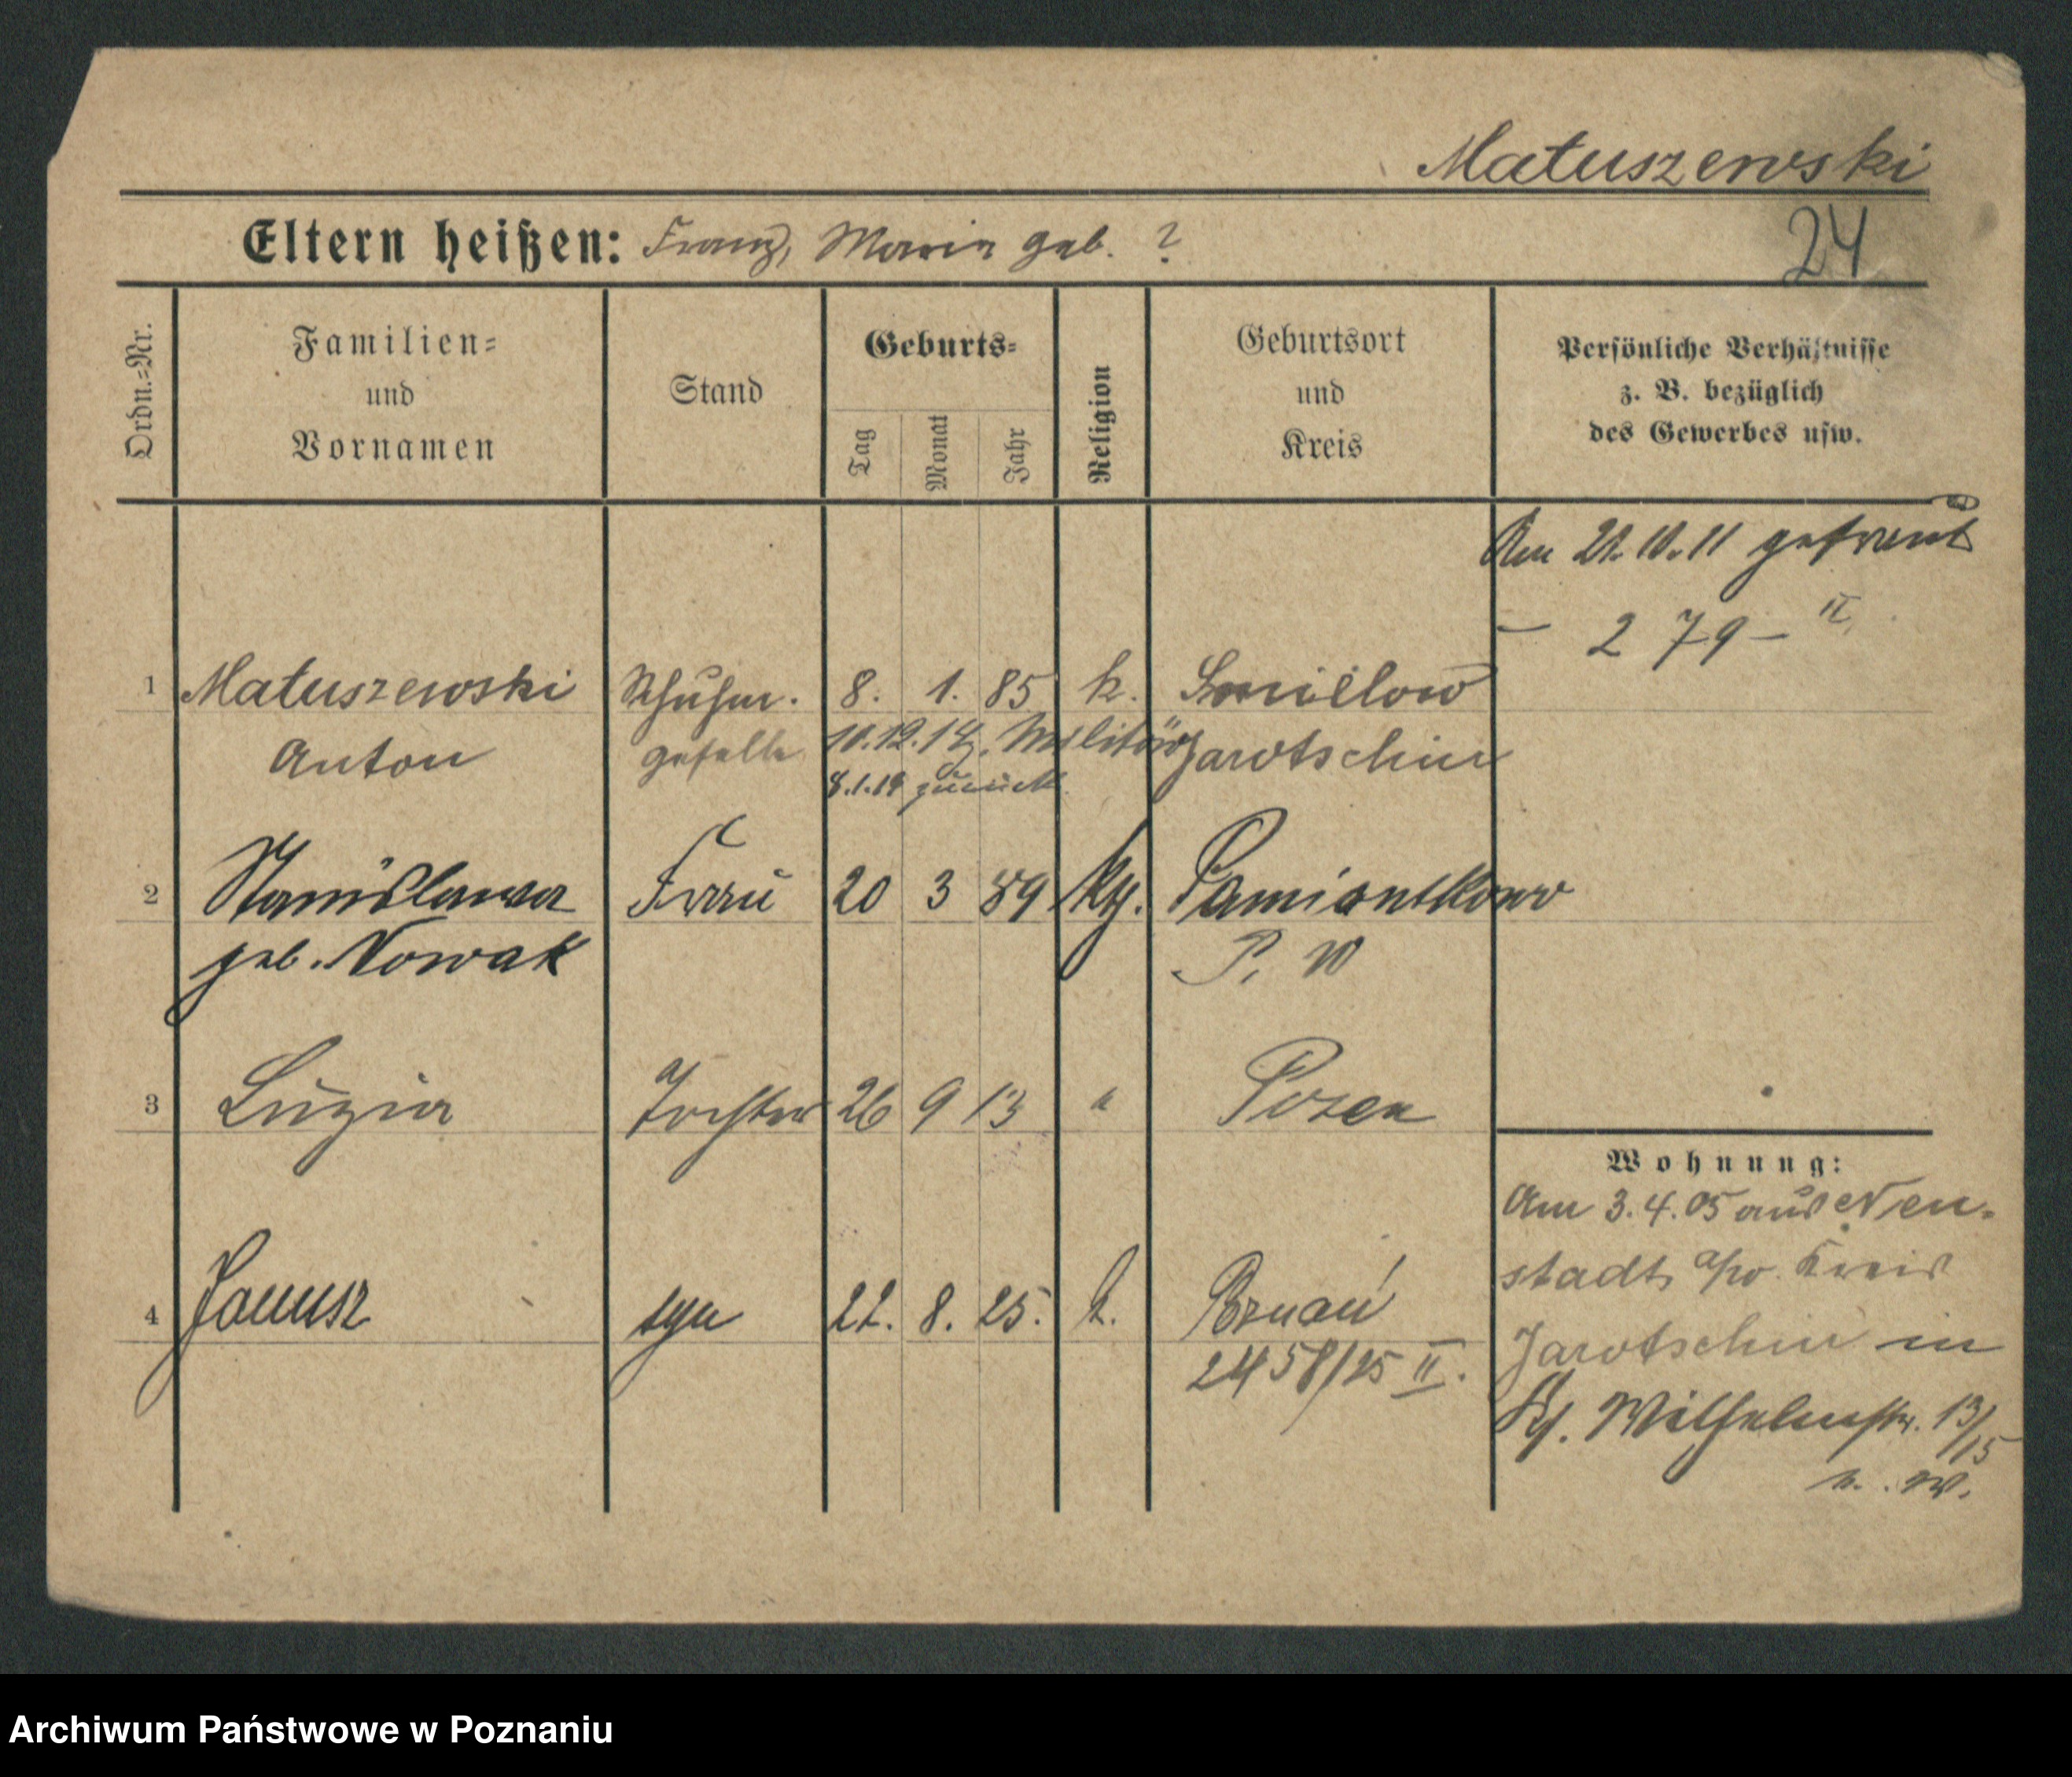 Matuszewski
Eltern heißen: Franz, Maria geb. ?
24
Ordn.-Nr.
Familien-
und
Vornamen
Stand
Geburts-
Tag
Monat
Jahr
Religion
Geburtsort
und
Kreis
Persönliche Verhältnisse
z. B. bezüglich
des Gewerbes usw.
Am 21.10.11 getraut
– 279 – II
1 Matuszewski Schuhm. 8. 1. 85 k. Smiellow
Anton geselle 10.12.14 z. Militär Jarotschin
8.1.19 zurück.
2 Stanislawa Frau 20 3 89 kg. Pamiontkowo
geb. Nowak P. W
3 Luzia Tochter 26 9 13 " Posen
4 Janusz syn 22. 8. 25. k. Poznań
2458/25 II.
Wohnung:
Am 3.4.05 aus Neu-
stadt a/W. Kreis
Jarotschin in
Wilhelmstr. 13/15
Archiwum Państwowe w Poznaniu